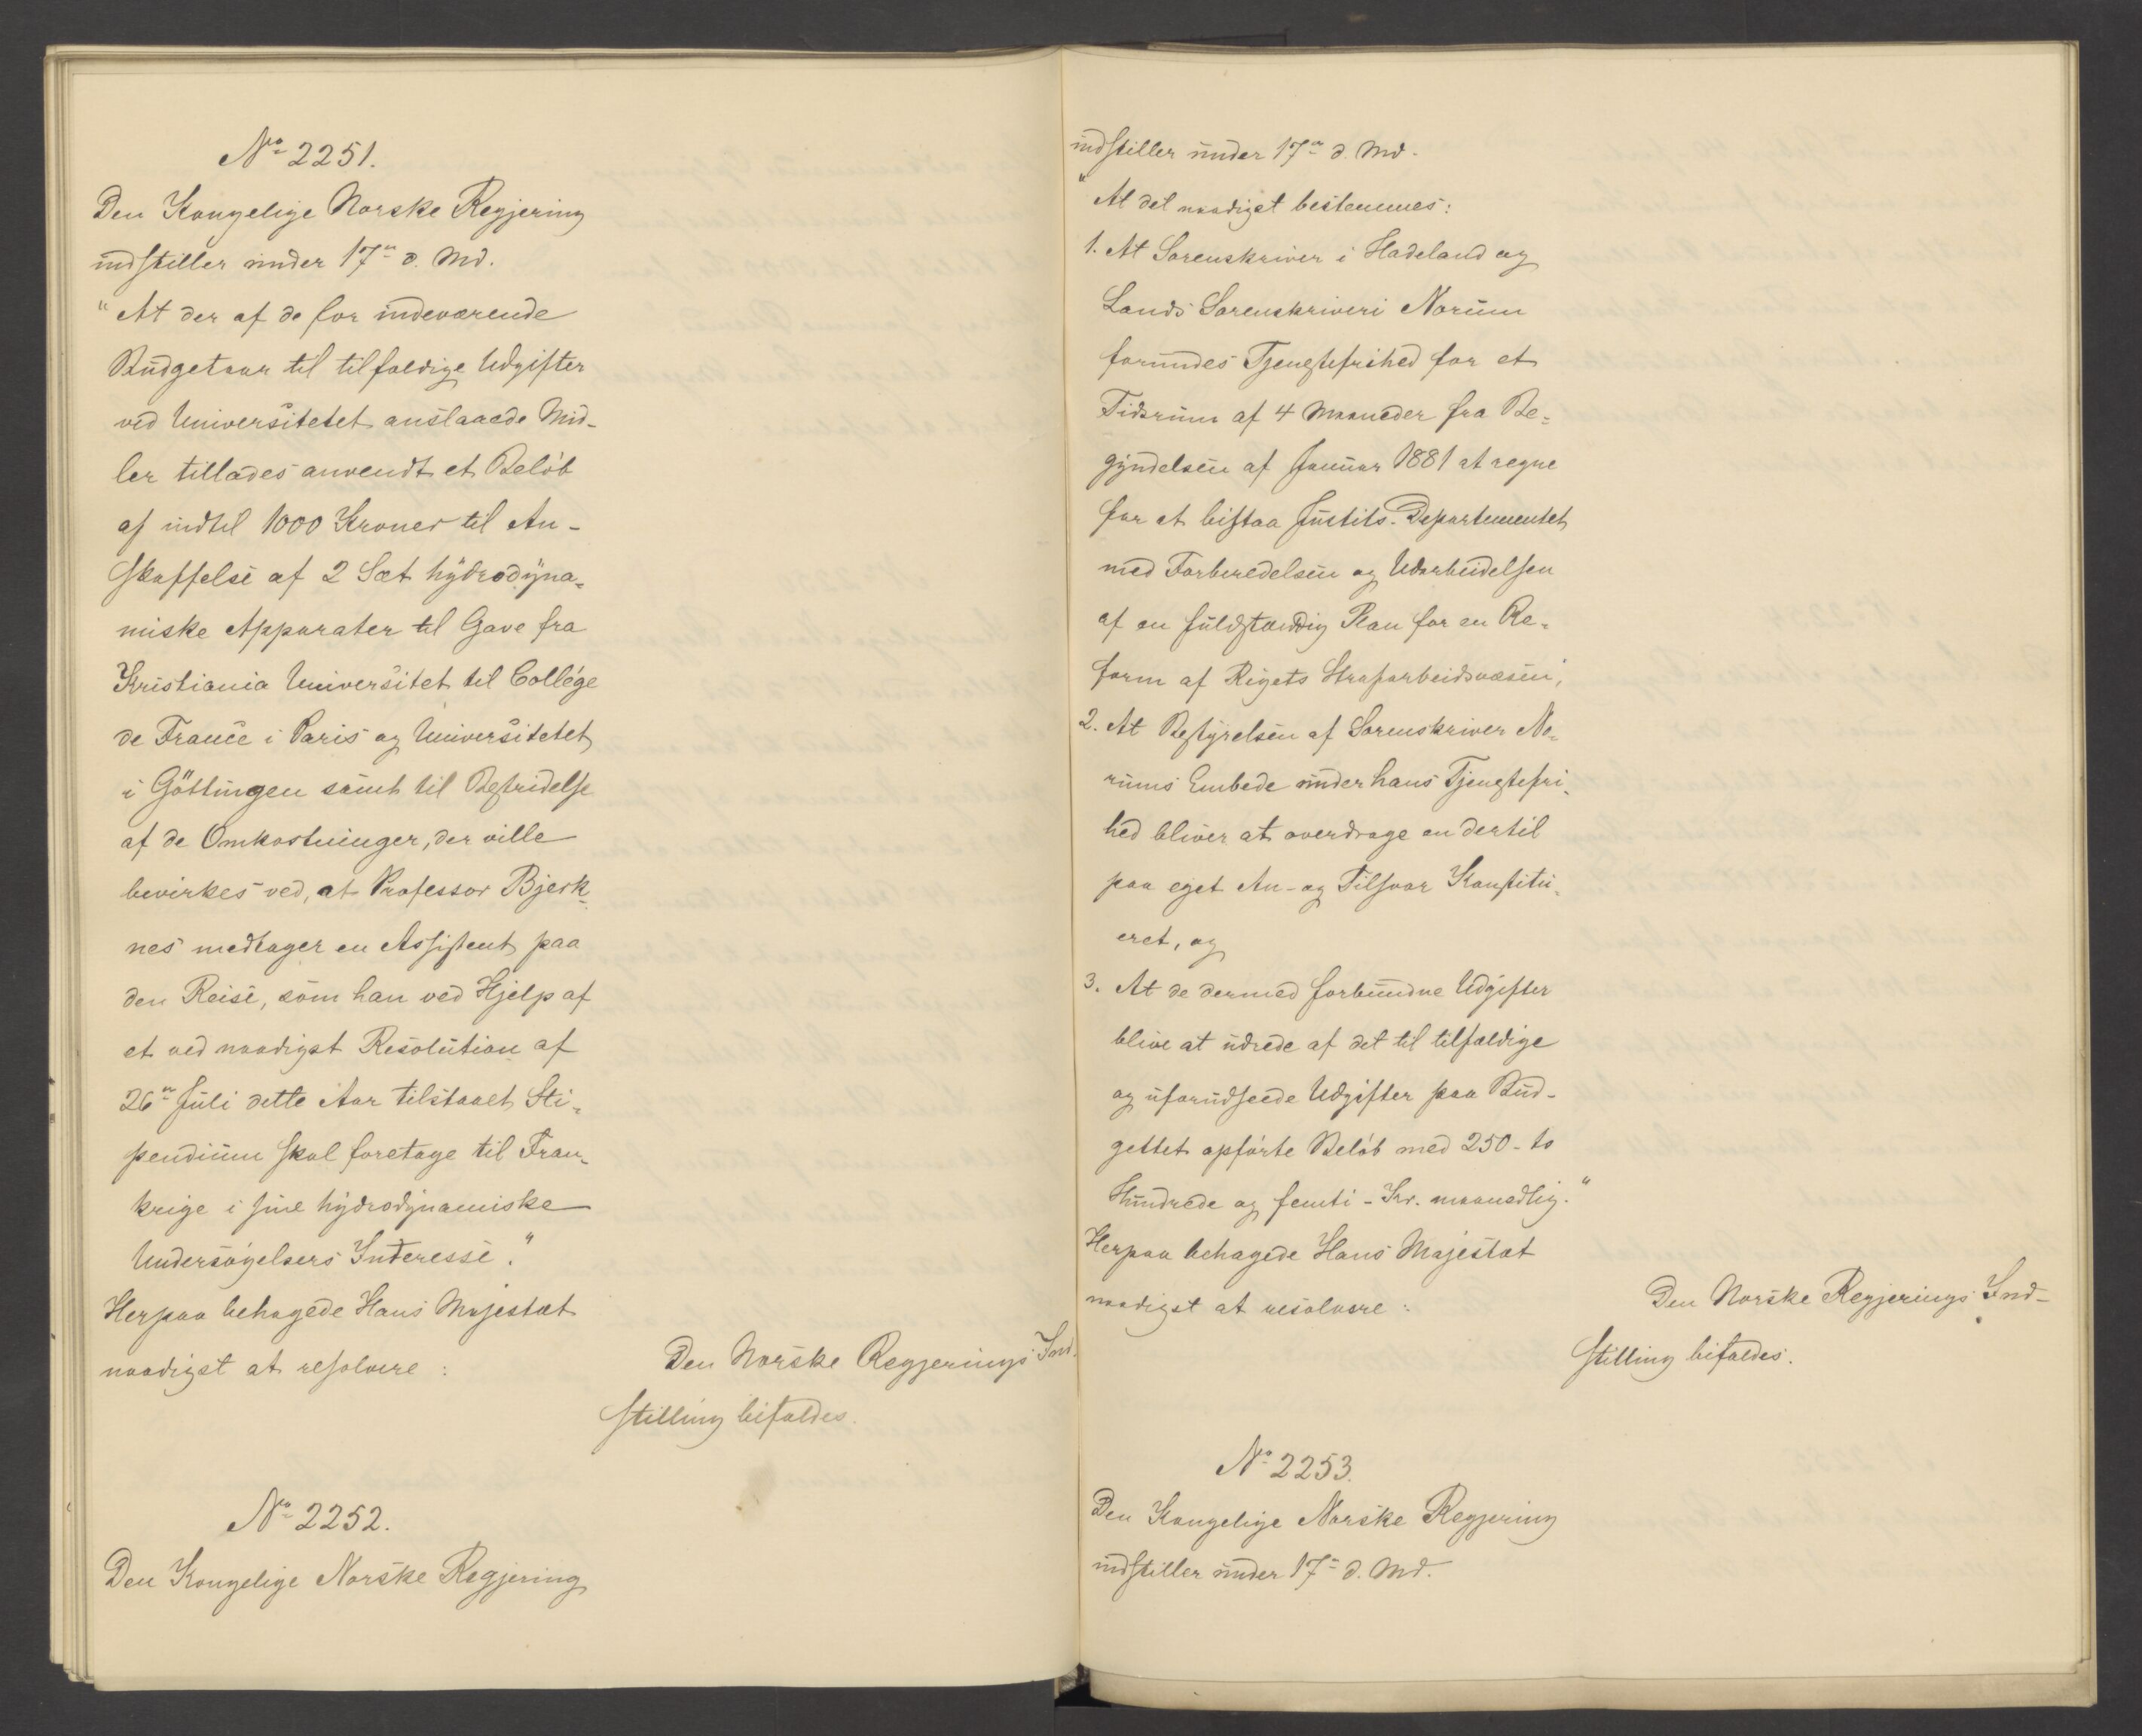 No 2251.
Den Kongelige Norske Regjering
indstiller under 17de d. Md.
"At der af de for indeværende
Budgetaar til tilfældige Udgifter
ved Universitetet anslaaede Mid-
ler tillades anvendt et Beløb
af indtil 1000 Kroner til An-
skaffelse af 2 Sæt hydrodyna-
miske Apparater til Gave fra
Kristiania Universitet til Collége
de France i Paris og Universitetet
i Göttingen samt til Bestridelse
af de Omkostninger, der ville
bevirkes ved, at Professor Bjerk-
nes medtager en Assistent paa
den Reise, som han ved Hjelp af
et ved naadigst Resolution af
26de Juli dette Aar tilstaaet Sti-
pendium skal foretage til Fran-
krige i sine hydrodynamiske
Undersøgelsers Interesse."
Herpaa behagede Hans Majestæt
naadigst at resolvere:
Den Norske Regjerings Ind-
stilling bifaldes.
No 2252.
Den Kongelige Norske Regjering
indstiller under 17de d. Md.
"At det naadigst bestemmes:
1. At Sorenskriver i Hadeland og
Lands Sorenskriveri Norum
forundes Tjenestefrihed for et
Tidsrum af 4 Maaneder fra Be-
gyndelsen af Januar 1881 at regne
for at bistaa Justits-Departementet
med Forberedelsen og Udarbeidelsen
af en fuldstændig Plan for en Re-
form af Rigets Strafarbeidsvæsen;
2. At Bestyrelsen af Sorenskriver No-
rums Embede under hans Tjenestefri-
hed bliver at overdrage en dertil
paa eget An- og Tilsvar Konstitu-
eret, og
3. At de dermed forbundne Udgifter
blive at udrede af det til tilfældige
og uforudseede Udgifter paa Bud-
gettet opførte Beløb med 250 - to
Hundrede og femti - Kr. maanedlig."
Herpaa behagede Hans Majestæt
naadigst at resolvere:
Den Norske Regjerings Ind-
stilling bifaldes.
No 2253.
Den Kongelige Norske Regjering
indstiller under 17de d. Md.